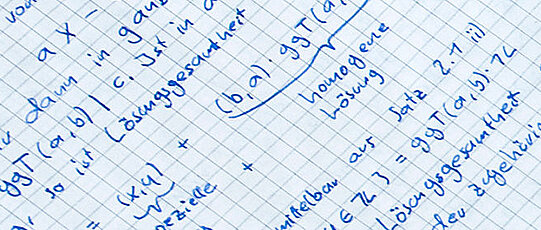 a X -
dann in ganz
ggT(a,b) | c. Ist in
so ist Lösungsgesamtheit
= (x,y) + (b,a) · ggT(a,
spezielle + homogene
Lösung
aus Satz 2.1 ii)
∈ ℤ } = ggT(a,b) · ℤ
Lösungsgesamtheit
zugehörig